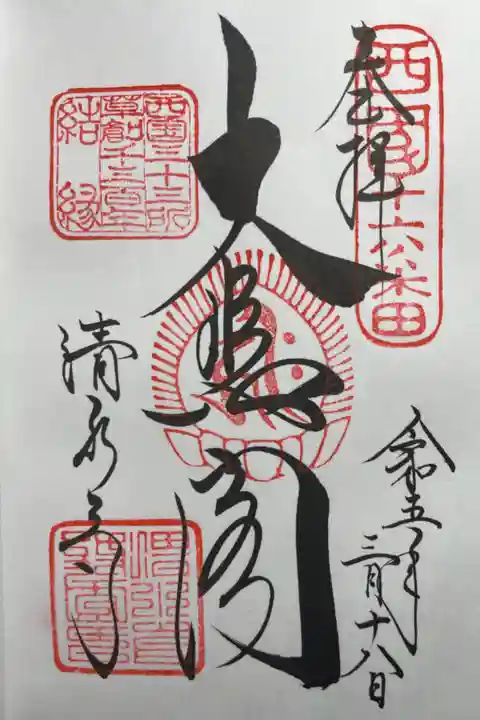 奉拝
西国十六番
令和五年
三月十八日
大悲閣
西国三十三所
草創千三百年
結縁
清水寺